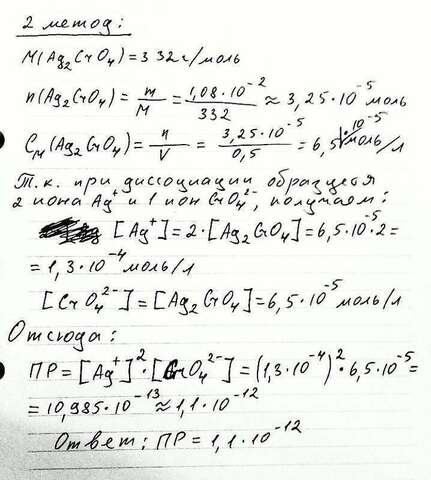 2 метод:
M(Ag₂CrO₄) = 332 г/моль
n(Ag₂CrO₄) = m/M = 1,08·10⁻²/332 ≈ 3,25·10⁻⁵ моль
Cм(Ag₂CrO₄) = n/V = 3,25·10⁻⁵/0,5 = 6,5·10⁻⁵ моль/л
Т.к. при диссоциации образуется
2 иона Ag⁺ и 1 ион CrO₄²⁻, получаем:
[Ag⁺] = 2·[Ag₂CrO₄] = 6,5·10⁻⁵·2 =
= 1,3·10⁻⁴ моль/л
[CrO₄²⁻] = [Ag₂CrO₄] = 6,5·10⁻⁵ моль/л
Отсюда:
ПР = [Ag⁺]²·[CrO₄²⁻] = (1,3·10⁻⁴)²·6,5·10⁻⁵ =
= 10,985·10⁻¹³ ≈ 1,1·10⁻¹²
Ответ: ПР = 1,1·10⁻¹²